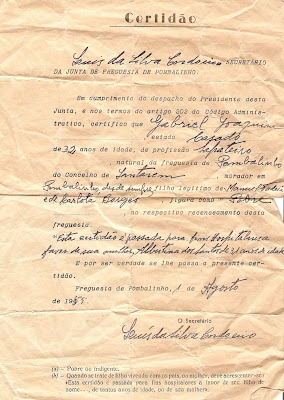 Certidão
Luis da Silva Cordeiro SECRETÁRIO
DA JUNTA DE FREGUESIA DE POMBALINHO:
Em cumprimento do despacho do Presidente desta
Junta, e nos termos do artigo 202 do Código Adminis-
trativo, certifico que Gabriel Joaquim
estado Casado
de 32 anos de idade, de profissão Sapateiro
, natural da freguesia de Pombalinho
do Concelho de Santarem , morador em
Pombalinho desde sempre, filho legítimo de Manuel
e de Carlota Borges , figura como Pobre
, no respectivo recenseamento desta
freguesia.
"Esta certidão é passada para fins Hospitalares a
favor de sua mulher, Albertina dos Santos de anos de idade
E por ser verdade se lhe passa a presente cer-
tidão.
Freguesia de Pombalinho, 1 de Agosto
de 1955.
O Secretário
Luis da Silva Cordeiro
(a) — Pobre ou indigente.
(b) — Quando se trate de filho vivendo com os pais, ou mulher, deve acrescentar-se:
«Esta certidão é passada para fins hospitalares a favor de seu filho de
nome..., de tantos anos de idade, ou de sua mulher».